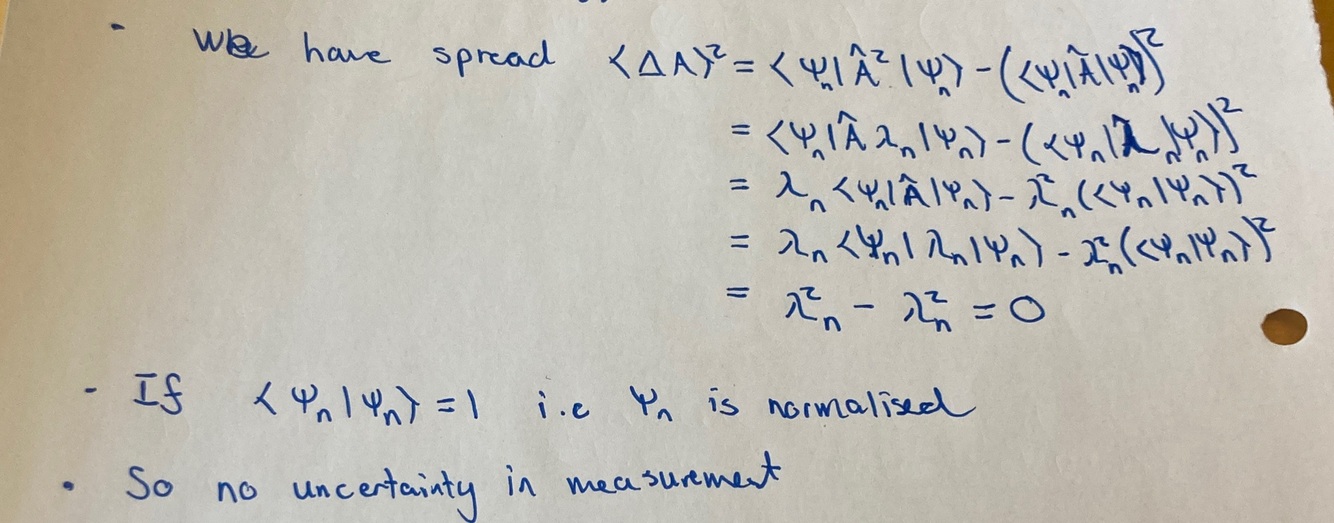 - We have spread ⟨ΔA⟩² = ⟨Ψₙ|Â²|Ψₙ⟩ - (⟨Ψₙ|Â|Ψₙ⟩)²
= ⟨Ψₙ|Â λₙ|Ψₙ⟩ - (⟨Ψₙ|λₙ|Ψₙ⟩)²
= λₙ⟨Ψₙ|Â|Ψₙ⟩ - λ²ₙ(⟨Ψₙ|Ψₙ⟩)²
= λₙ⟨Ψₙ|λₙ|Ψₙ⟩ - λ²ₙ(⟨Ψₙ|Ψₙ⟩)²
= λ²ₙ - λ²ₙ = 0
- If ⟨Ψₙ|Ψₙ⟩ = 1 i.e Ψₙ is normalised
• So no uncertainty in measurement